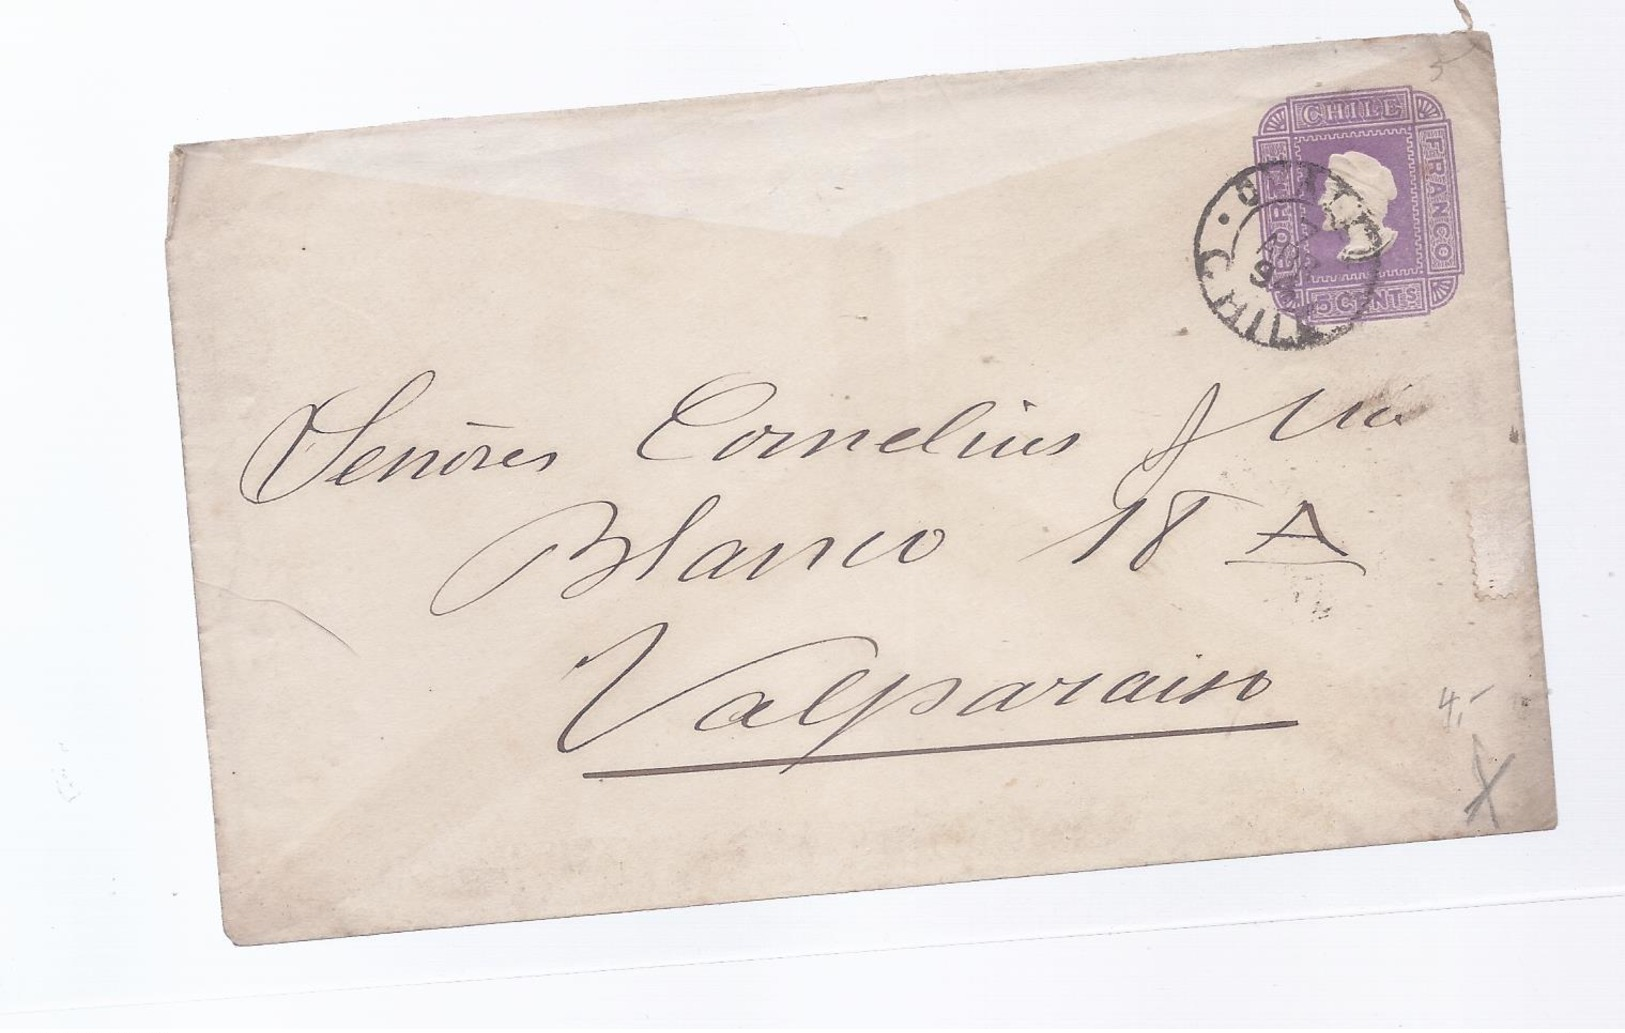 5
CHILE
PORTE
FRANCO
5 CENTS
CHILE
94
Señores Cornelius y Cia
Blanco 18 A
Valparaiso
4,-
X